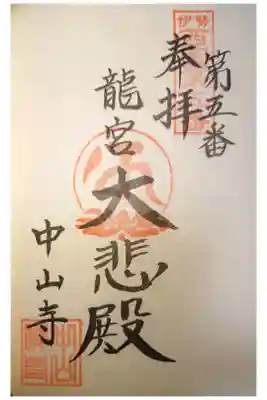 奉拝
第五番
伊勢
龍宮
大悲殿
中山寺